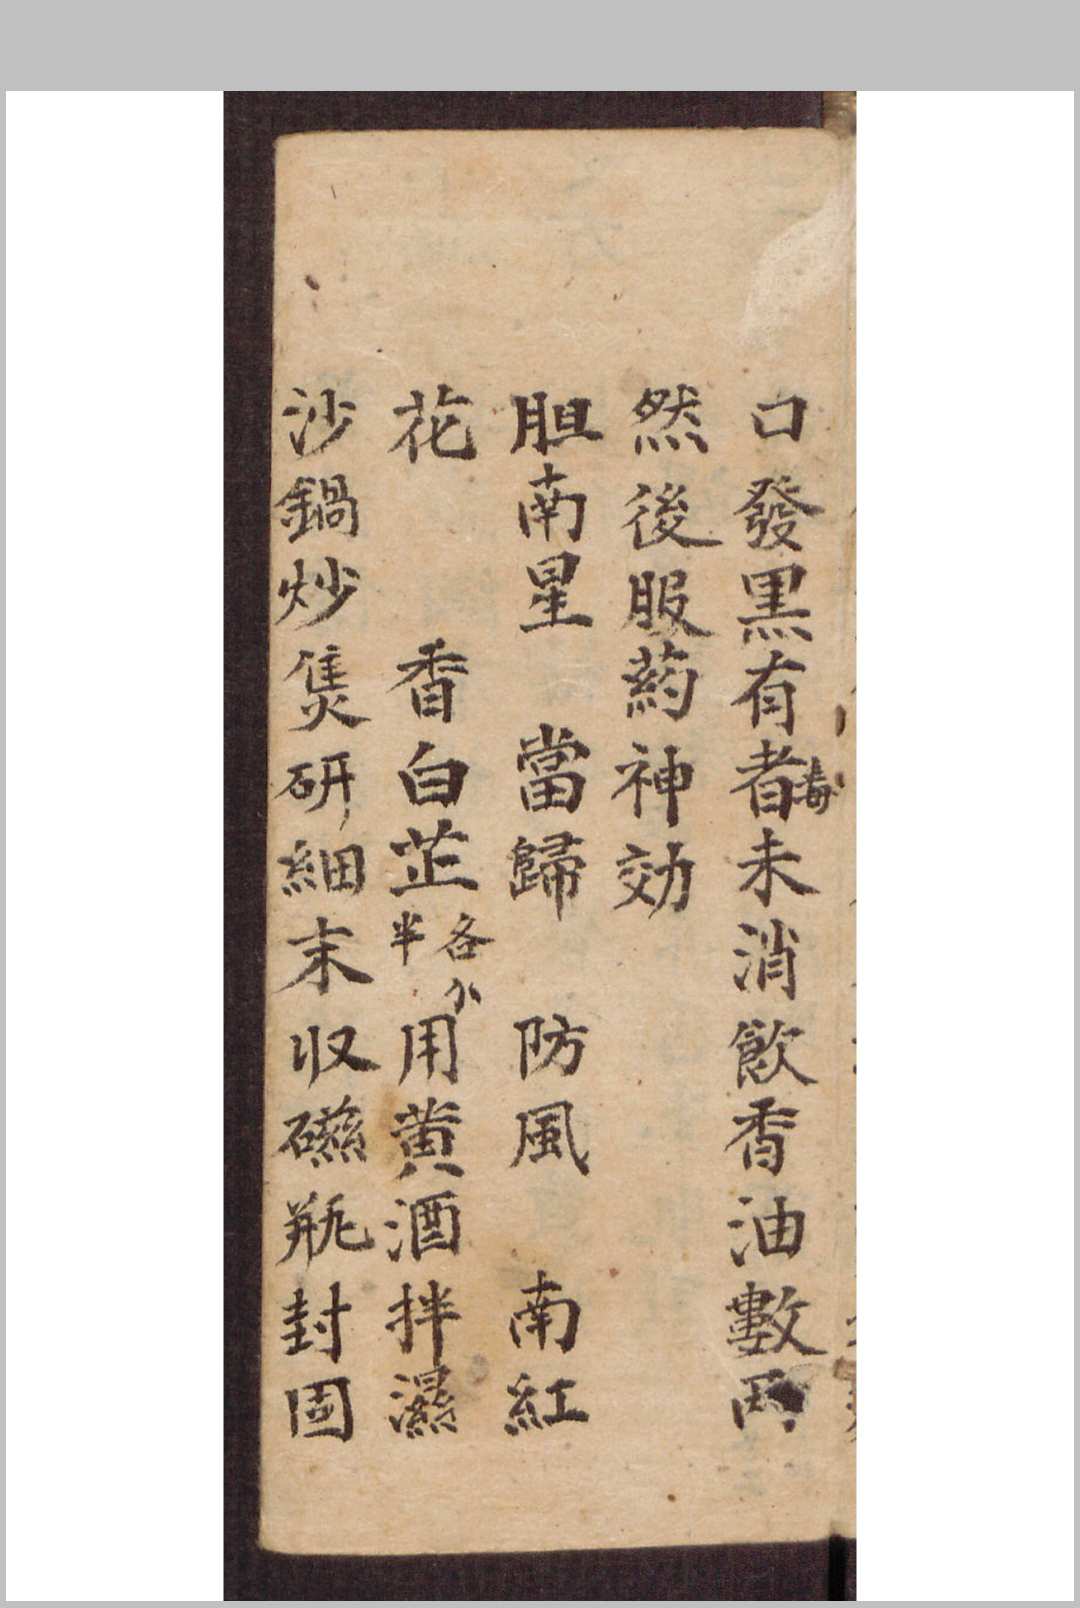 口發黑有者毒未消飲香油數两
然後服药神効
胆南星　當歸　防風　南紅
花　香白芷各半分用黄酒拌濕
沙鍋炒隻研細末収磁瓶封固